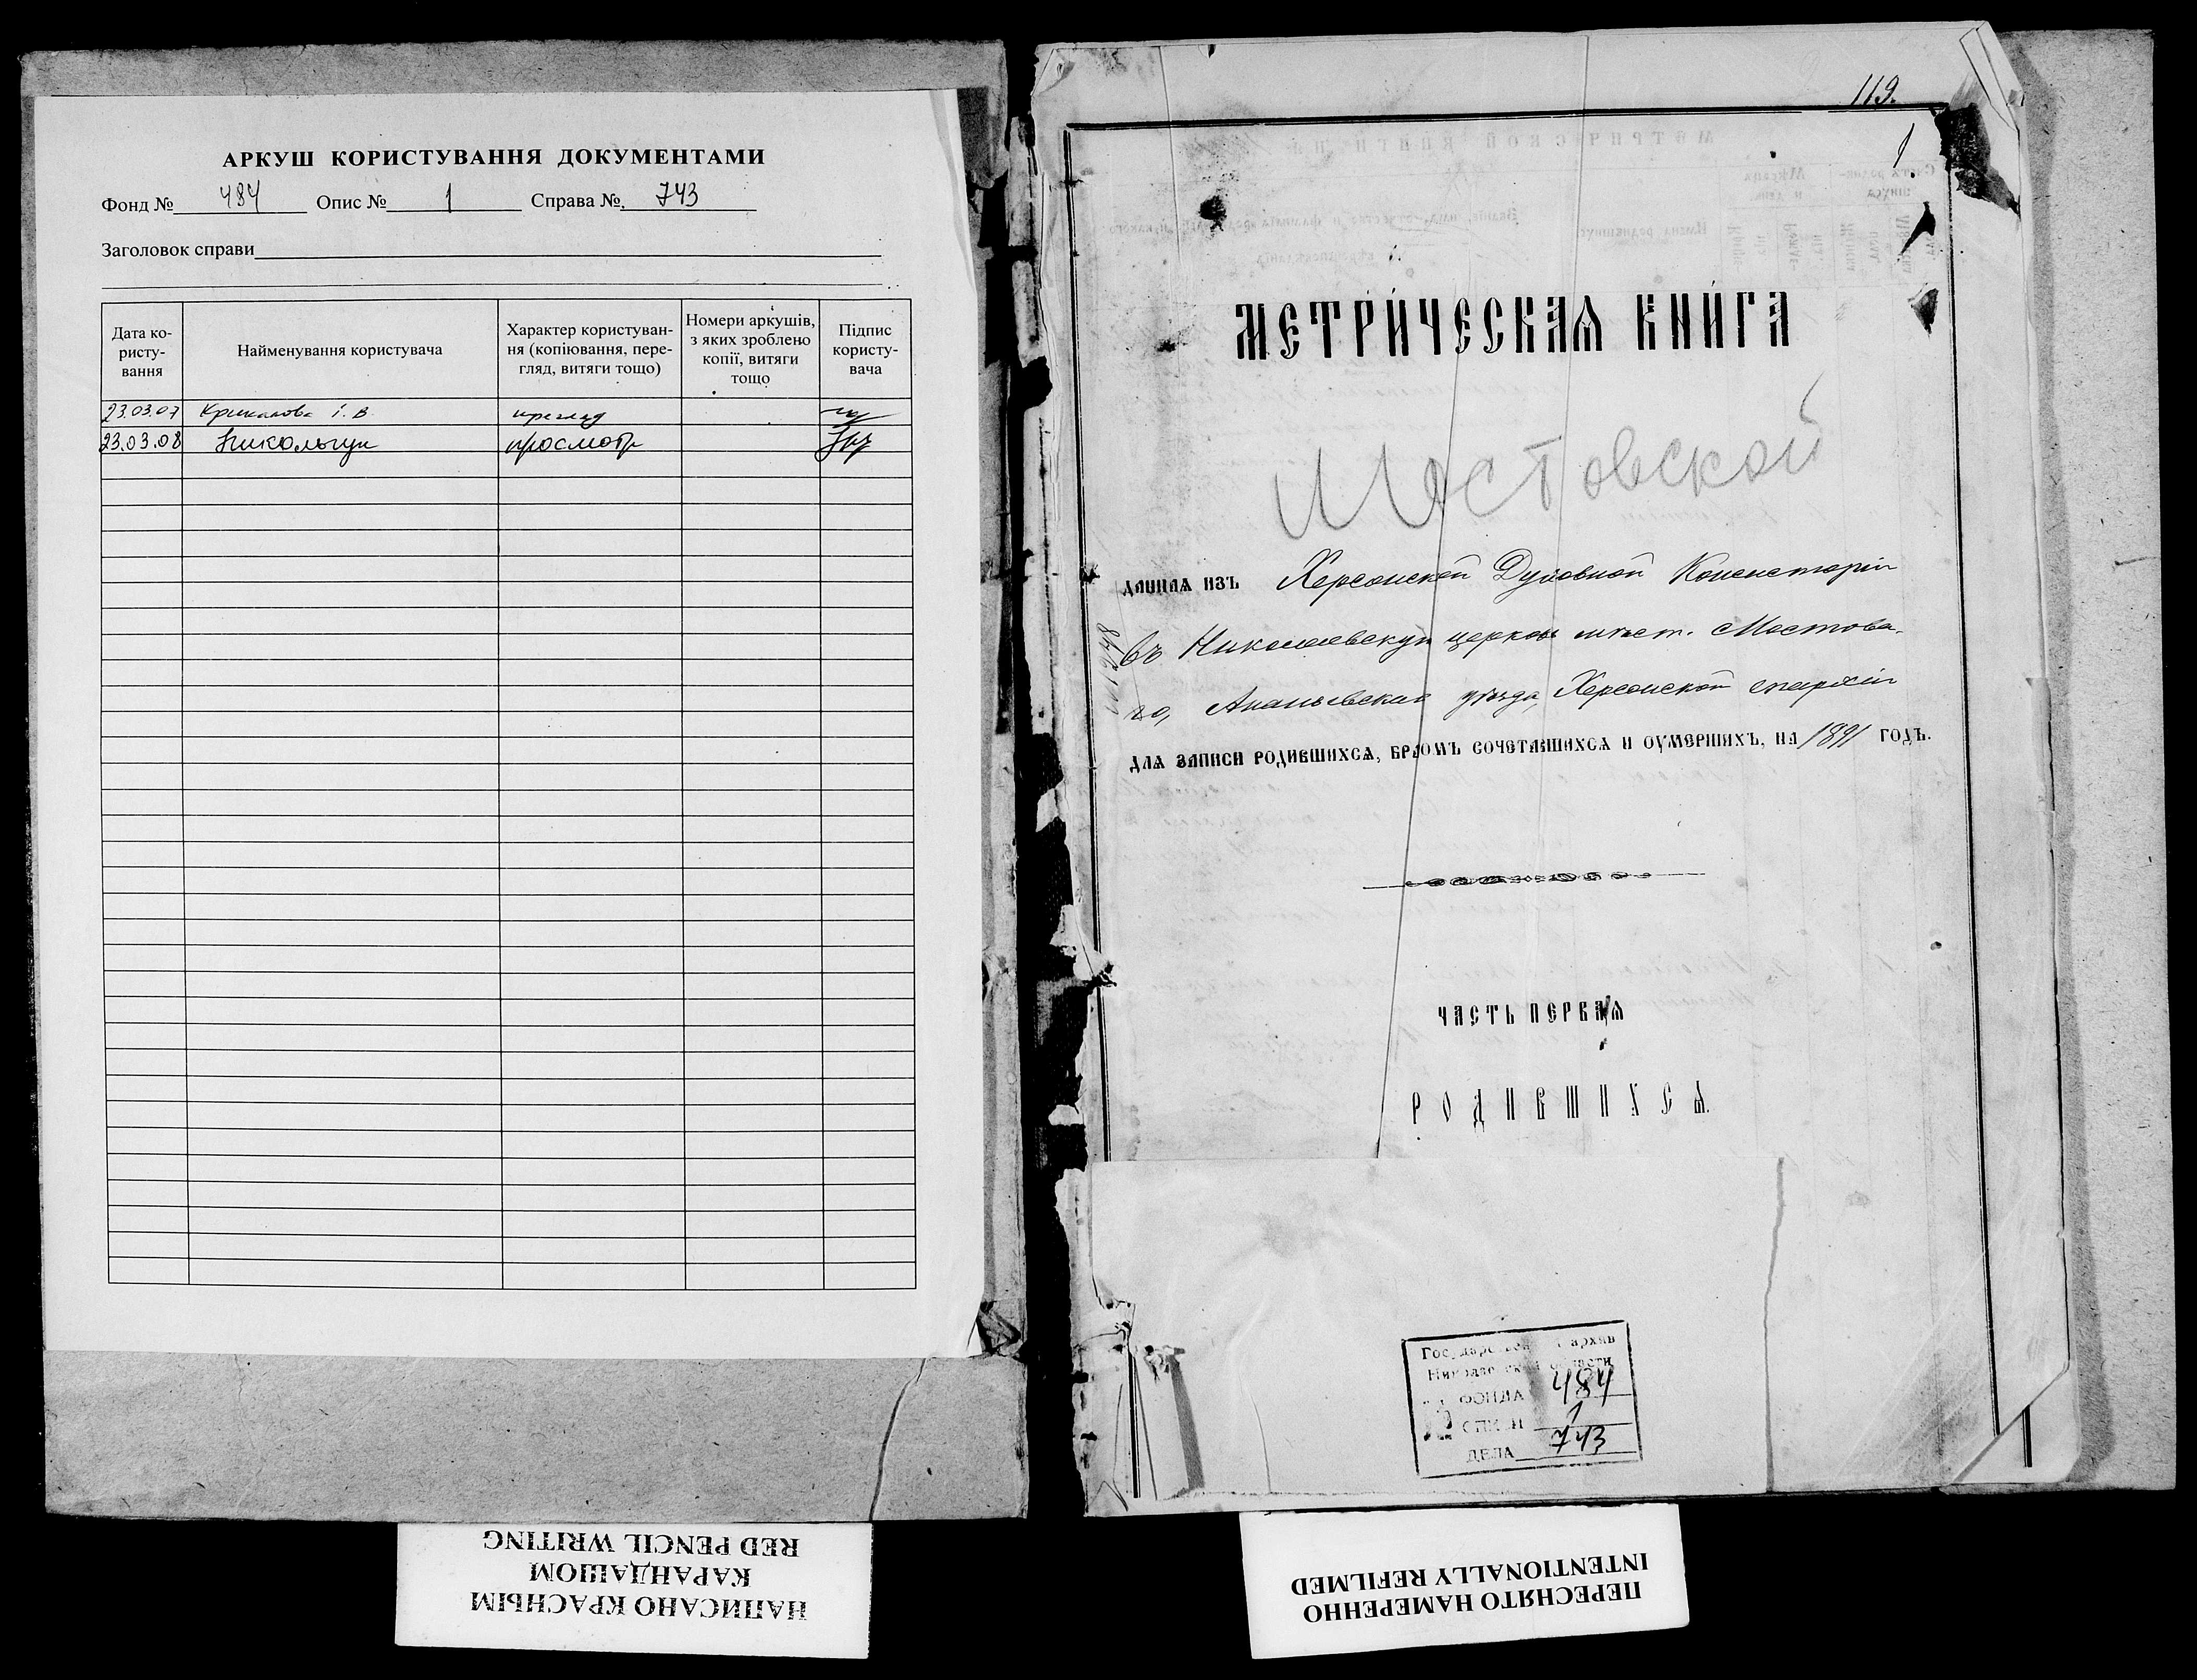 АРКУШ КОРИСТУВАННЯ ДОКУМЕНТАМИ
Фонд № 484 Опис № 1 Справа № 743
Заголовок справи
Дата ко-
ристу-
вання
Найменування користувача
Характер користуван-
ня (копіювання, пере-
гляд, витяги тощо)
Номери аркушів,
з яких зроблено
копії, витяги
тощо
Підпис
користу-
вача
23.03.07 І. В.
23.03.08 просмотр
НАПИСАНО КРАСНЫМ
КАРАНДАШОМ
RED PENCIL WRITING
119.
1
МЕТРИ́ЧЕСКАѦ КНИ́ГА
Мостовской
даннаѧ изъ Херсонской Духовной Консисторіи
въ Николаевскую церковь мѣст. Мостова-
го, Ананьевскаго уѣзда, Херсонской епархіи
длѧ записи родившихсѧ, бракомъ сочетавшихсѧ и оумершихъ, на 1891 годъ.
ЧАСТЬ ПЕРВАѦ
РОДИВШИХСѦ.
Государственный архив
Николаевской области
ФОНДА 484
ОПИСИ 1
ДЕЛА 743
ПЕРЕСНЯТО НАМЕРЕННО
INTENTIONALLY REFILMED